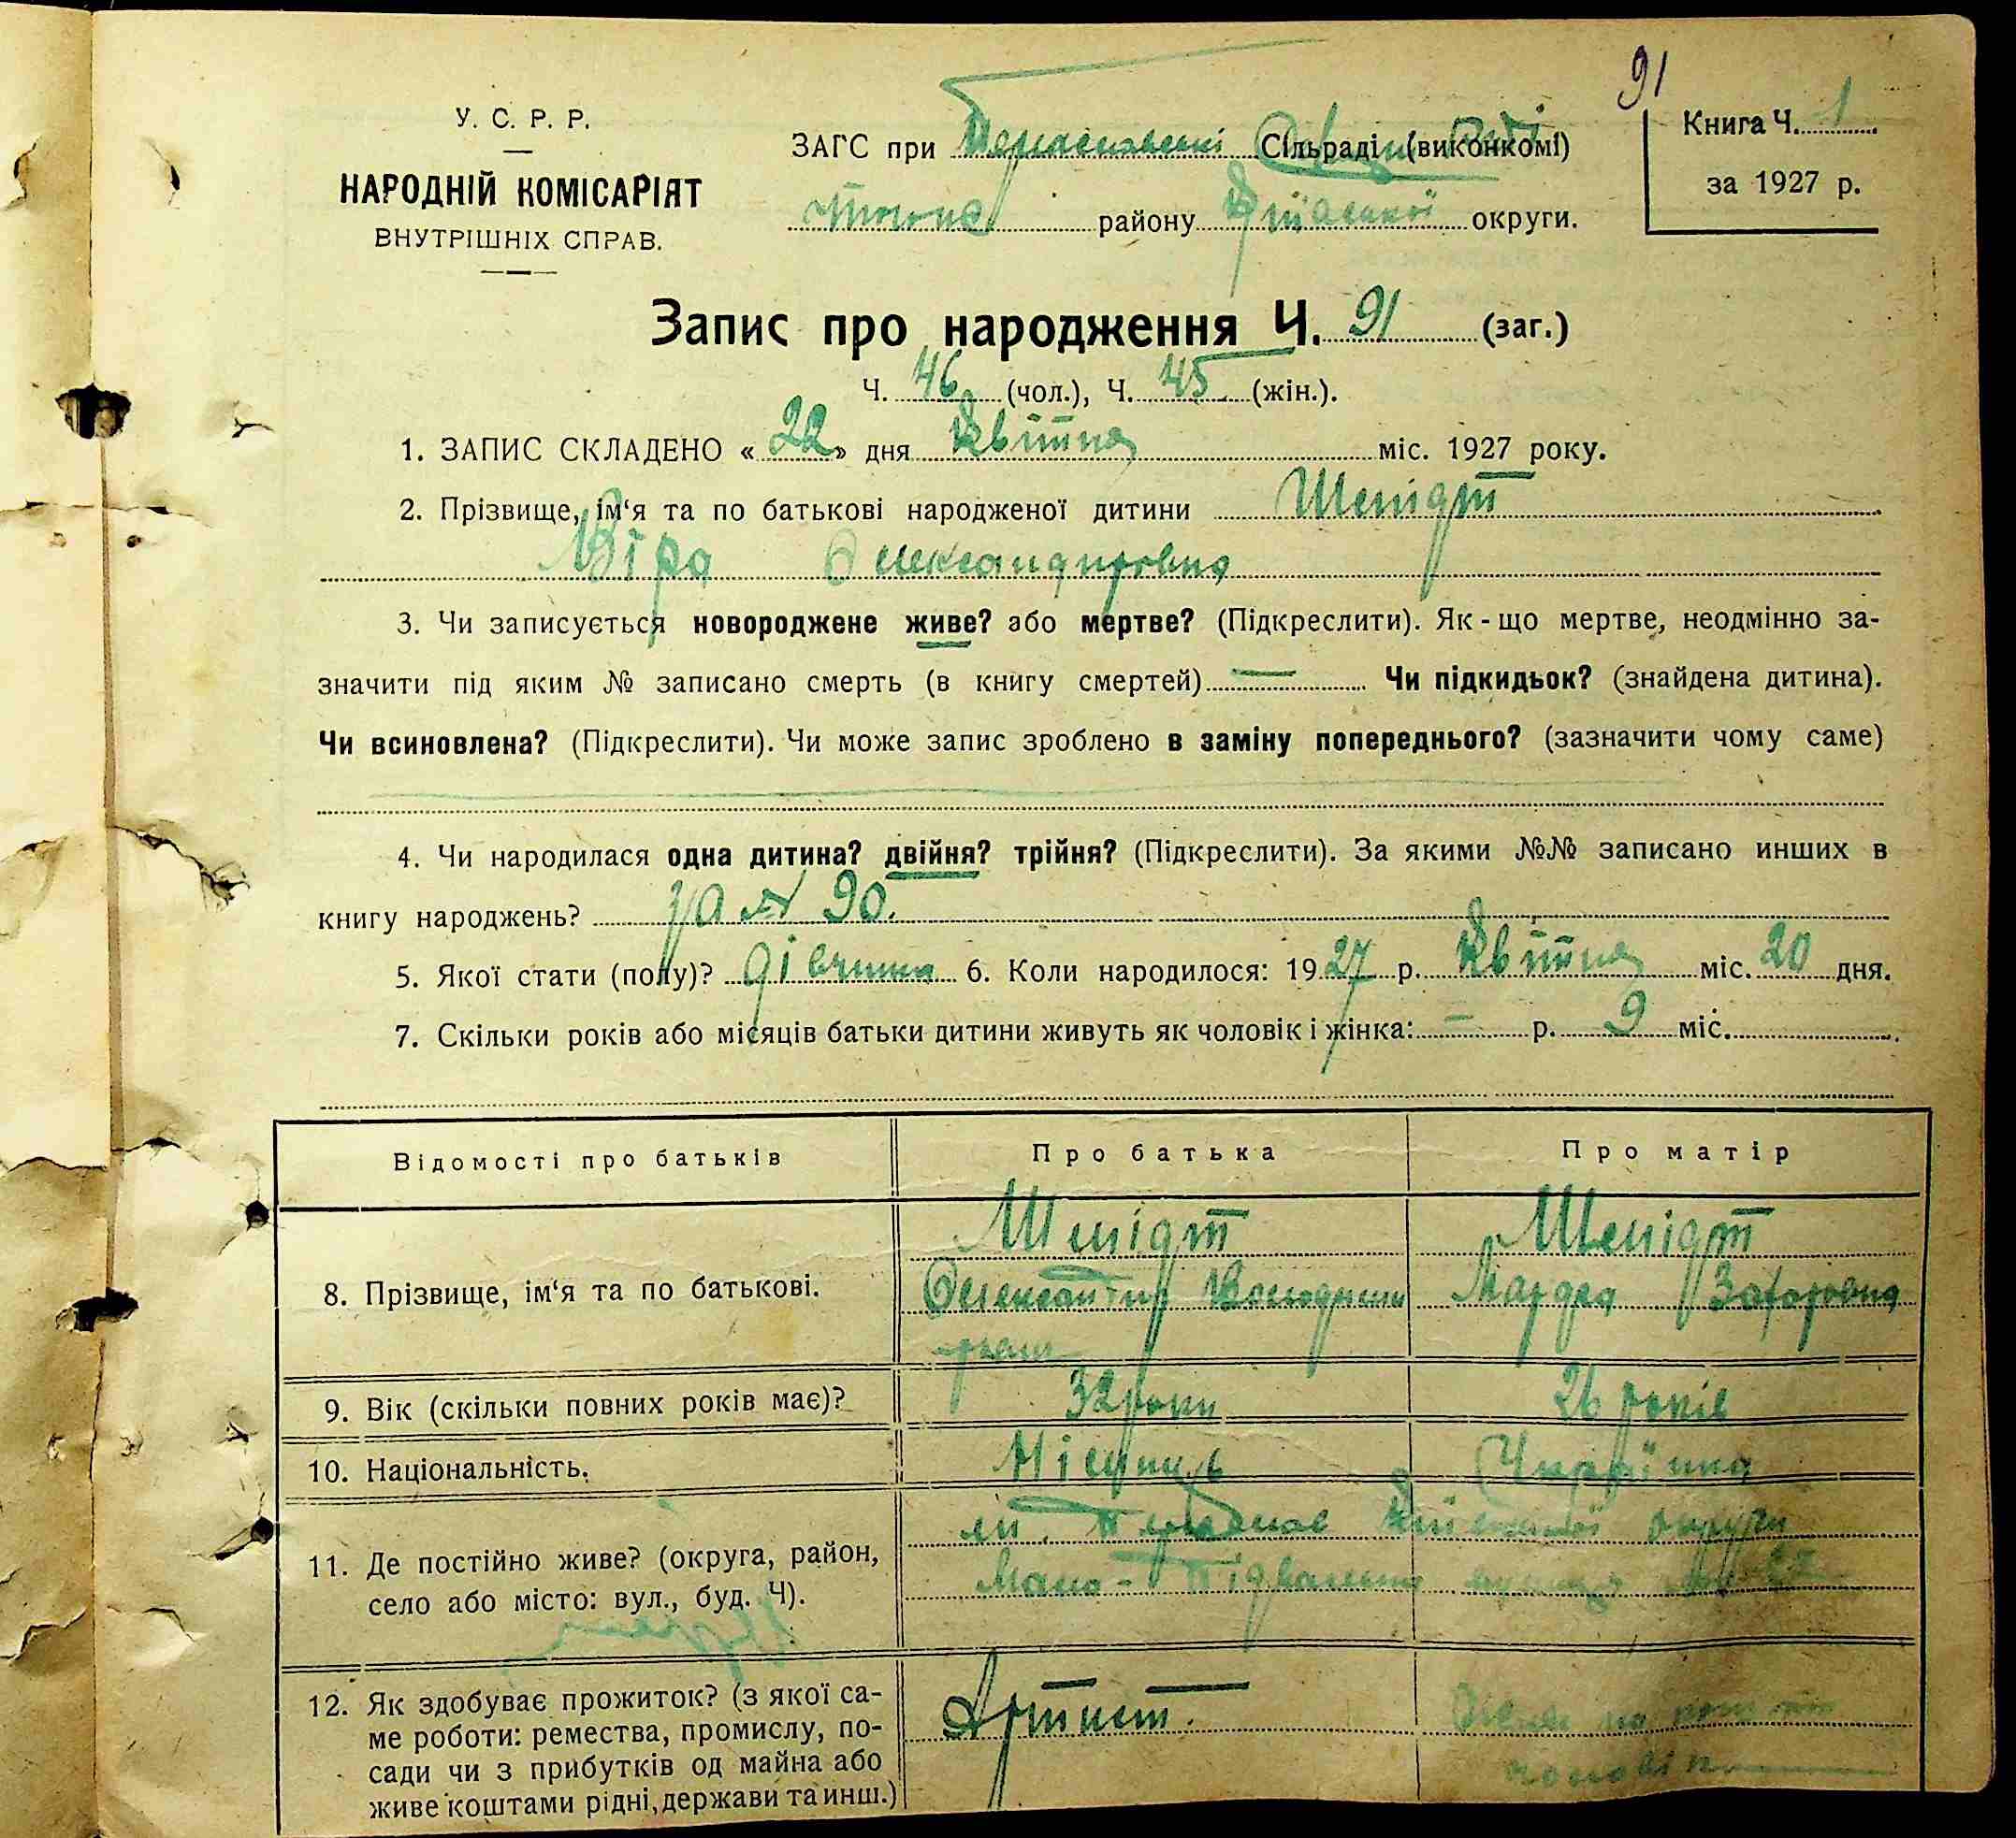 91
У. С. Р. Р.
НАРОДНІЙ КОМІСАРІЯТ
ВНУТРІШНІХ СПРАВ.
ЗАГС при Сільраді (виконкомі)
району округи.
Книга Ч. 1
за 1927 р.
Запис про народження Ч. 91 (заг.)
Ч. 46 (чол.), Ч. 45 (жін.).
1. ЗАПИС СКЛАДЕНО « 22 » дня Квітня міс. 1927 року.
2. Прізвище, ім‘я та по батькові народженої дитини Шмідт
Віра Олександровна
3. Чи записується новороджене живе? або мертве? (Підкреслити). Як-що мертве, неодмінно за-
значити під яким № записано смерть (в книгу смертей) — Чи підкидьок? (знайдена дитина).
Чи всиновлена? (Підкреслити). Чи може запис зроблено в заміну попереднього? (зазначити чому саме)
4. Чи народилася одна дитина? двійня? трійня? (Підкреслити). За якими №№ записано инших в
книгу народжень? за № 90.
5. Якої стати (полу)? дівчина 6. Коли народилося: 1927 р. Квітня міс. 20 дня.
7. Скільки років або місяців батьки дитини живуть як чоловік і жінка: — р. 9 міс.
Відомості про батьків Про батька Про матір
8. Прізвище, ім‘я та по батькові. Шмідт Шмідт
Олександр Володими Захаровна
9. Вік (скільки повних років має)? 32 роки 26 років
10. Національність. Німець
11. Де постійно живе? (округа, район, село або місто: вул., буд. Ч). Київської округи
Мало-Підвальна
12. Як здобуває прожиток? (з якої са- Артист.
ме роботи: ремества, промислу, по-
сади чи з прибутків од майна або
живе коштами рідні, держави та инш.)